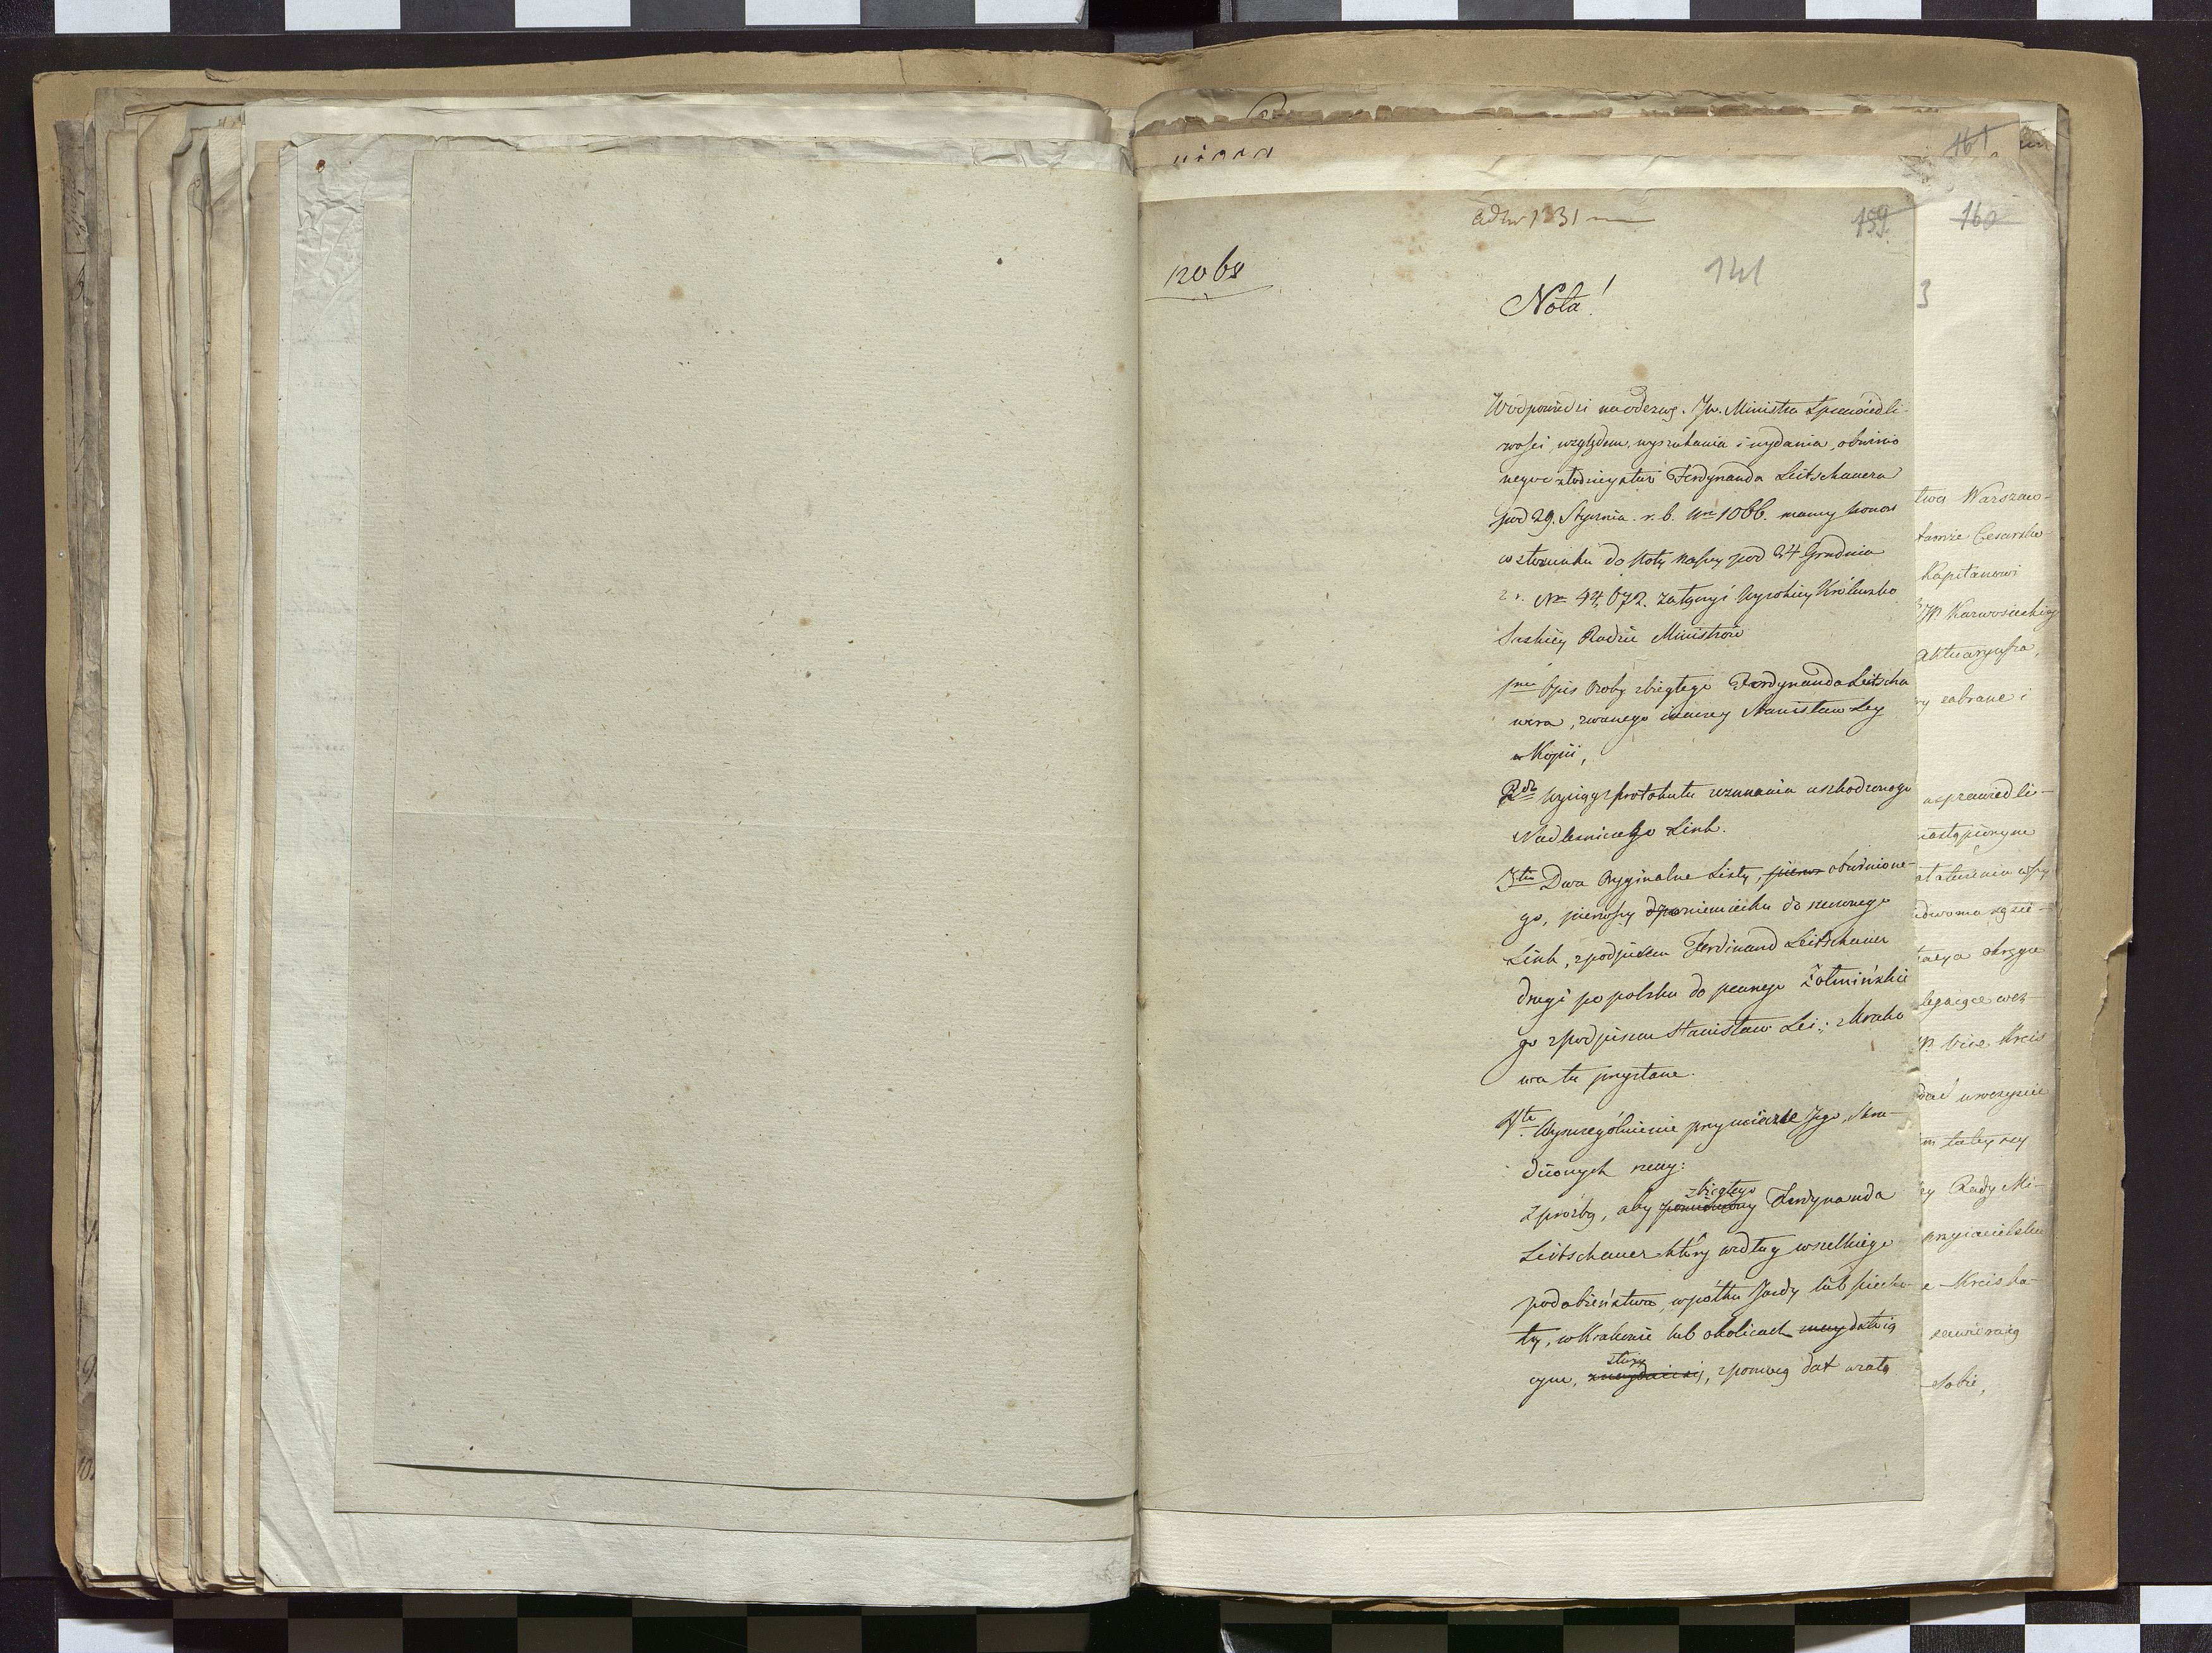 161
159
160
141
12068
Nota!
3
W odpowiedzi na odezwę. Jw. Ministra Sprawiedli-
wości względem, wyszukania i wydania obwinio
nego o złodzieystwo Ferdynanda Leitschauera
pod 29. Stycznia. r. b. Nro 1066. mamy honor
w stosunku do Noty naszey pod 24 Grudnia
z. r. Nro 44,672. załączyć Wysokiey Królewsko
Saskiey Radzie Ministrów
1mo Opis Osoby zbiegłego Ferdynanda Leitscha
uera, zwanego inaczey Stanisław Ley
w Kopii,
2do Wyciąg z protokułu zeznania uszkodzonego
Nadlesniczego Link.
3tio Dwa Oryginalne Listy, pierw obwinione-
go, pierwszy dpo niemiecku do rzeczonego
Link, z podpisem Ferdinand Leitschauer
drugi po polsku do pewnego Żołmińskie
go z podpisem Stanisław Lei: z Krako
wa tu przysłane.
4to Wyszczególnienie przy ucieczce Jego, skra-
dzionych rzeczy:
Z prośbą, aby zbiegłego Ferdynanda
Leitschauer który według wszelkiego
podobieństwa, w półku Jazdy lub piecho-
ty, w Krakowie lub okolicach
cym, służy, z pomocą dat
twa Warszaw-
tamże Cesarsko
Kapitanowi
JP Karwosieckiey
aktuaryusza,
ry zabrane i
usprawiedli-
nastąpionym
dwoma
legaiące
P. Vice Kreis
dał uroczyście
m takey
ry Rady Mi-
przyiacielsko
e Kreisha-
zawieraią
Sobie,